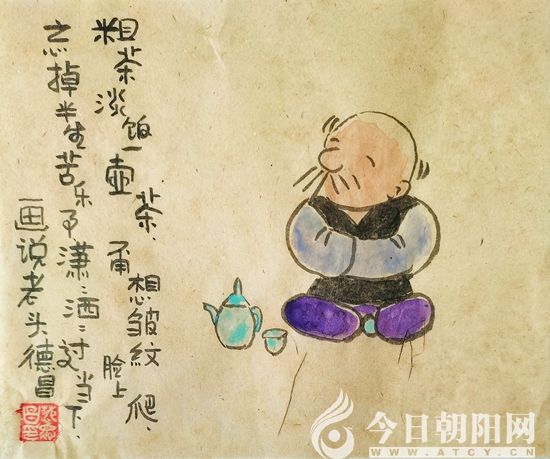 粗茶淡饭一壶茶、甭想皱纹脸上爬、
忘掉半生苦乐潇:洒:过当下.
画说老头德昌
今日朝阳网
WWW.ATCY.CN